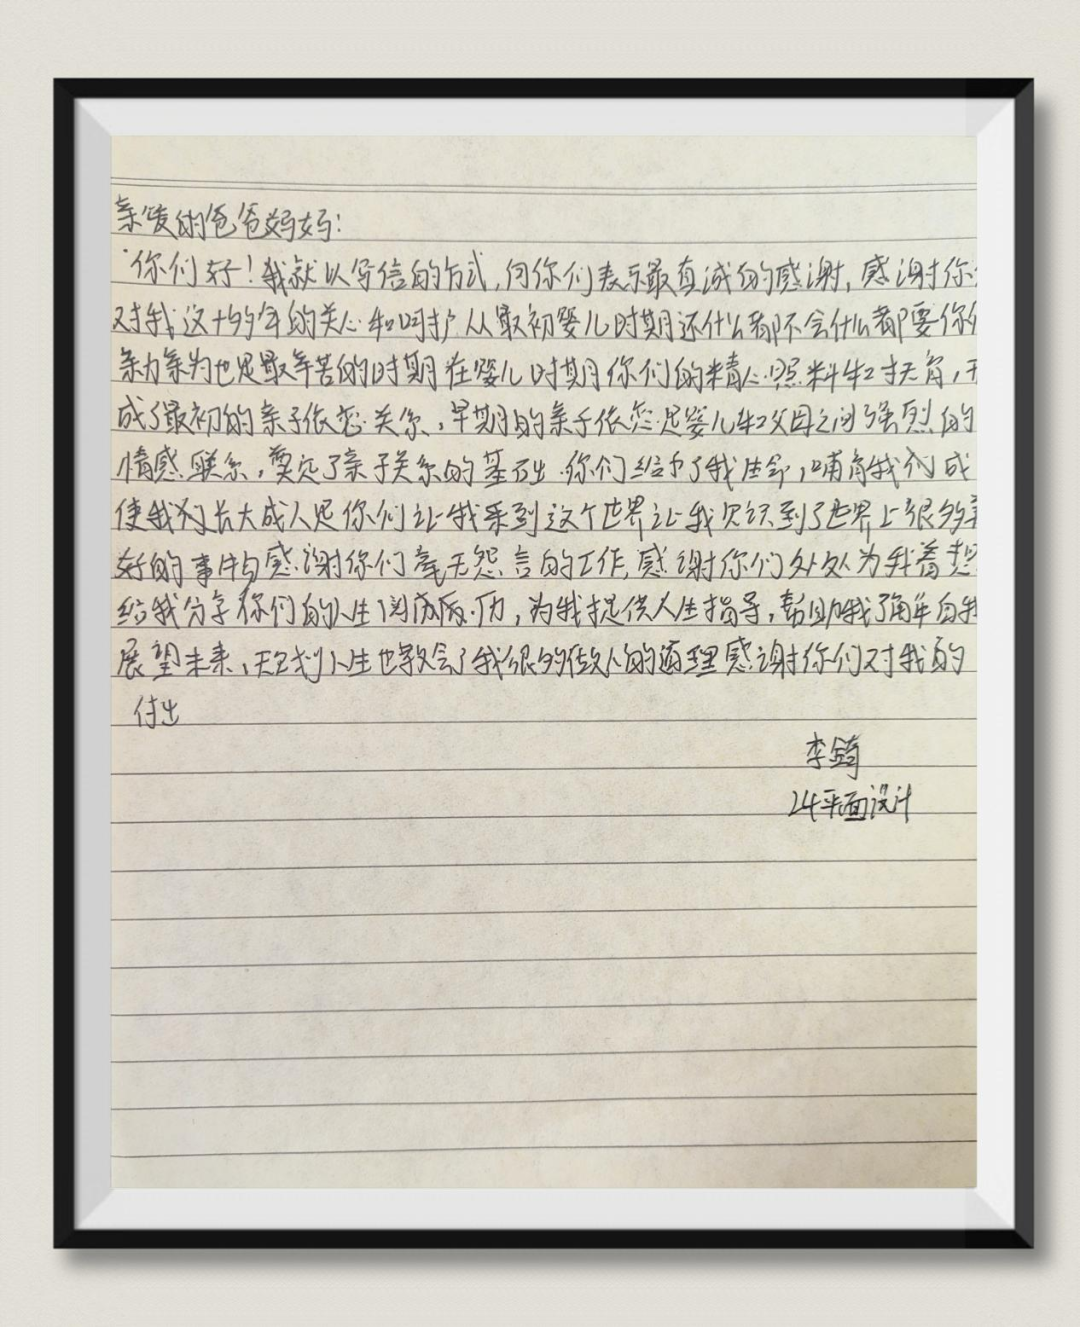 亲爱的爸爸妈妈:
你们好!我就以写信的方式,向你们表示最真诚的感谢,感谢你
对我这十多年的关心和呵护从最初婴儿时期还什么都不会什么都要你
亲力亲为也是最辛苦的时期在婴儿时期你们的精心照料和抚育,
成了最初的亲子依恋关系,早期的亲子依恋是婴儿和父母之间强烈的
情感联系,奠定了亲子关系的基础.你们给予了我生命,哺育我们成
使我们长大成人是你们让我来到这个世界让我认识到了世界上很多
好的事情与感谢你们毫无怨言的工作,感谢你们处处为我着想
给我分享你们的人生阅历,为我提供人生指导,帮助我了解自我
展望未来,规划人生也教会了我很多做人的道理感谢你们对我的
付出
李錡
24平面设计